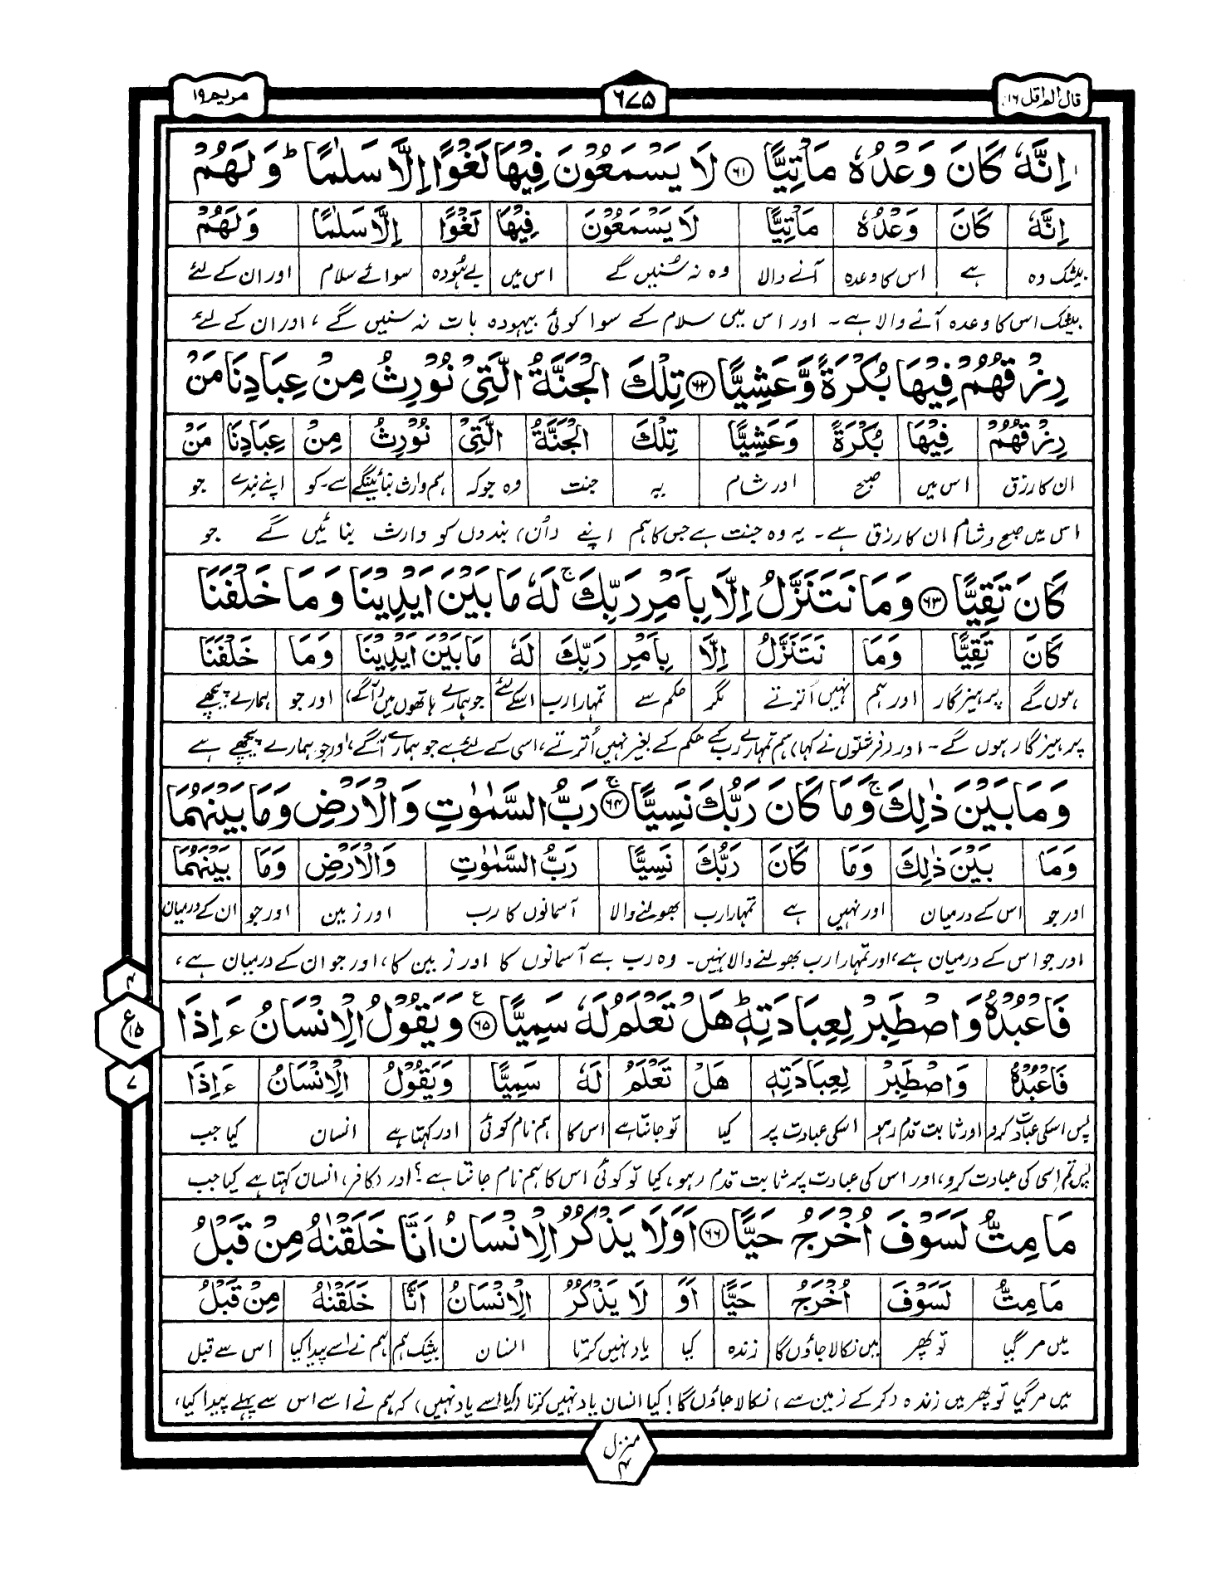 قال الم اقل ١٦
٦٧٥
مريم ١٩
اِنَّهٗ كَانَ وَعْدُهٗ مَاْتِيًّا ﴿٦١﴾ لَا يَسْمَعُوْنَ فِيْهَا لَغْوًا اِلَّا سَلٰمًا ؕ وَلَهُمْ
اِنَّهٗ كَانَ وَعْدُهٗ مَاْتِيًّا لَا يَسْمَعُوْنَ فِيْهَا لَغْوًا اِلَّا سَلٰمًا وَلَهُمْ
بیشک وہ ہے اس کا وعدہ آنے والا وہ نہ سُنیں گے اس میں بے ہُودہ سوائے سلام اور ان کے لئے
بیشک اس کا وعدہ آنے والا ہے۔ اور اس میں سلام کے سوا کوئی بیہودہ بات نہ سنیں گے، اور ان کے لئے
رِزْقُهُمْ فِيْهَا بُكْرَةً وَّعَشِيًّا ﴿٦٢﴾ تِلْكَ الْجَنَّةُ الَّتِيْ نُوْرِثُ مِنْ عِبَادِنَا مَنْ
رِزْقُهُمْ فِيْهَا بُكْرَةً وَعَشِيًّا تِلْكَ الْجَنَّةُ الَّتِيْ نُوْرِثُ مِنْ عِبَادِنَا مَنْ
ان کا رزق اس میں صبح اور شام یہ جنت وہ جو کہ ہم وارث بنائینگے سے۔کو اپنے بندے جو
اس میں صبح و شام ان کا رزق ہے۔ یہ وہ جنت ہے جس کا ہم اپنے (اُن) بندوں کو وارث بنائیں گے جو
كَانَ تَقِيًّا ﴿٦٣﴾ وَمَا نَتَنَزَّلُ اِلَّا بِاَمْرِ رَبِّكَ ۚ لَهٗ مَا بَيْنَ اَيْدِيْنَا وَمَا خَلْفَنَا
كَانَ تَقِيًّا وَمَا نَتَنَزَّلُ اِلَّا بِاَمْرِ رَبِّكَ لَهٗ مَا بَيْنَ اَيْدِيْنَا وَمَا خَلْفَنَا
ہوں گے پرہیزگار اور ہم نہیں اُترتے مگر حکم سے تمہارا رب اسکے لئے جو ہمارے ہاتھوں میں (آگے) اور جو ہمارے پیچھے
پرہیزگار ہوں گے۔ اور (فرشتوں نے کہا) ہم تمہارے رب کے حکم کے بغیر نہیں اُترتے، اسی کے لئے ہے جو ہمارے آگے، اور جو ہمارے پیچھے ہے
وَمَا بَيْنَ ذٰلِكَ ۚ وَمَا كَانَ رَبُّكَ نَسِيًّا ﴿٦٤﴾ رَبُّ السَّمٰوٰتِ وَالْاَرْضِ وَمَا بَيْنَهُمَا
وَمَا بَيْنَ ذٰلِكَ وَمَا كَانَ رَبُّكَ نَسِيًّا رَبُّ السَّمٰوٰتِ وَالْاَرْضِ وَمَا بَيْنَهُمَا
اور جو اس کے درمیان اور نہیں ہے تمہارا رب بھولنے والا آسمانوں کا رب اور زمین اور جو ان کے درمیان
اور جو اس کے درمیان ہے، اور تمہارا رب بھولنے والا نہیں۔ وہ رب ہے آسمانوں کا اور زمین کا، اور جو ان کے درمیان ہے،
فَاعْبُدْهُ وَاصْطَبِرْ لِعِبَادَتِهٖ ؕ هَلْ تَعْلَمُ لَهٗ سَمِيًّا ﴿٦٥﴾ وَيَقُوْلُ الْاِنْسَانُ ءَاِذَا
فَاعْبُدْهُ وَاصْطَبِرْ لِعِبَادَتِهٖ هَلْ تَعْلَمُ لَهٗ سَمِيًّا وَيَقُوْلُ الْاِنْسَانُ ءَاِذَا
پس اسکی عبادت کرو اور ثابت قدم رہو اسکی عبادت پر کیا تو جانتا ہے اس کا ہم نام کوئی اور کہتا ہے انسان کیا جب
پس تم اسی کی عبادت کرو، اور اس کی عبادت پر ثابت قدم رہو، کیا تو کوئی اس کا ہم نام جانتا ہے؟ اور (کافر) انسان کہتا ہے کیا جب
مَا مِتُّ لَسَوْفَ اُخْرَجُ حَيًّا ﴿٦٦﴾ اَوَلَا يَذْكُرُ الْاِنْسَانُ اَنَّا خَلَقْنٰهُ مِنْ قَبْلُ
مَا مِتُّ لَسَوْفَ اُخْرَجُ حَيًّا اَوَ لَا يَذْكُرُ الْاِنْسَانُ اَنَّا خَلَقْنٰهُ مِنْ قَبْلُ
میں مر گیا تو پھر میں نکالا جاؤں گا زندہ کیا یاد نہیں کرتا انسان بیشک ہم ہم نے اسے پیدا کیا اس سے قبل
میں مر گیا تو پھر میں زندہ (کر کے زمین سے) نکالا جاؤں گا! کیا انسان یاد نہیں کرتا (کیا اسے یاد نہیں) کہ ہم نے اسے اس سے پہلے پیدا کیا،
٤
ع ١٥
٧
منزل ٤